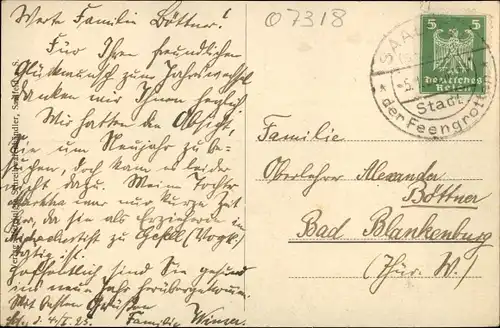 Werte Familie Böttner!
Für Ihren freundlichen
Glückwunsch zum Jahreswechsel
danken wir Ihnen herzlich
Wir hatten die Absicht,
Sie um Neujahr zu be-
suchen, doch kam es leider
nicht dazu. Meine Tochter
hatte nur kurze Zeit
da sie als Erzieherin im
zu Gefell (Vogtl.)
tätig ist.
Hoffentlich sind Sie gesund
ins neue Jahr herübergekommen.
Mit besten Grüßen
Familie
07318
5 5
Deutsches
Reich
SAAL
Stadt
der Feengrotten
Familie
Oberlehrer Alexander
Böttner
Bad Blankenburg
(Thür. W.)